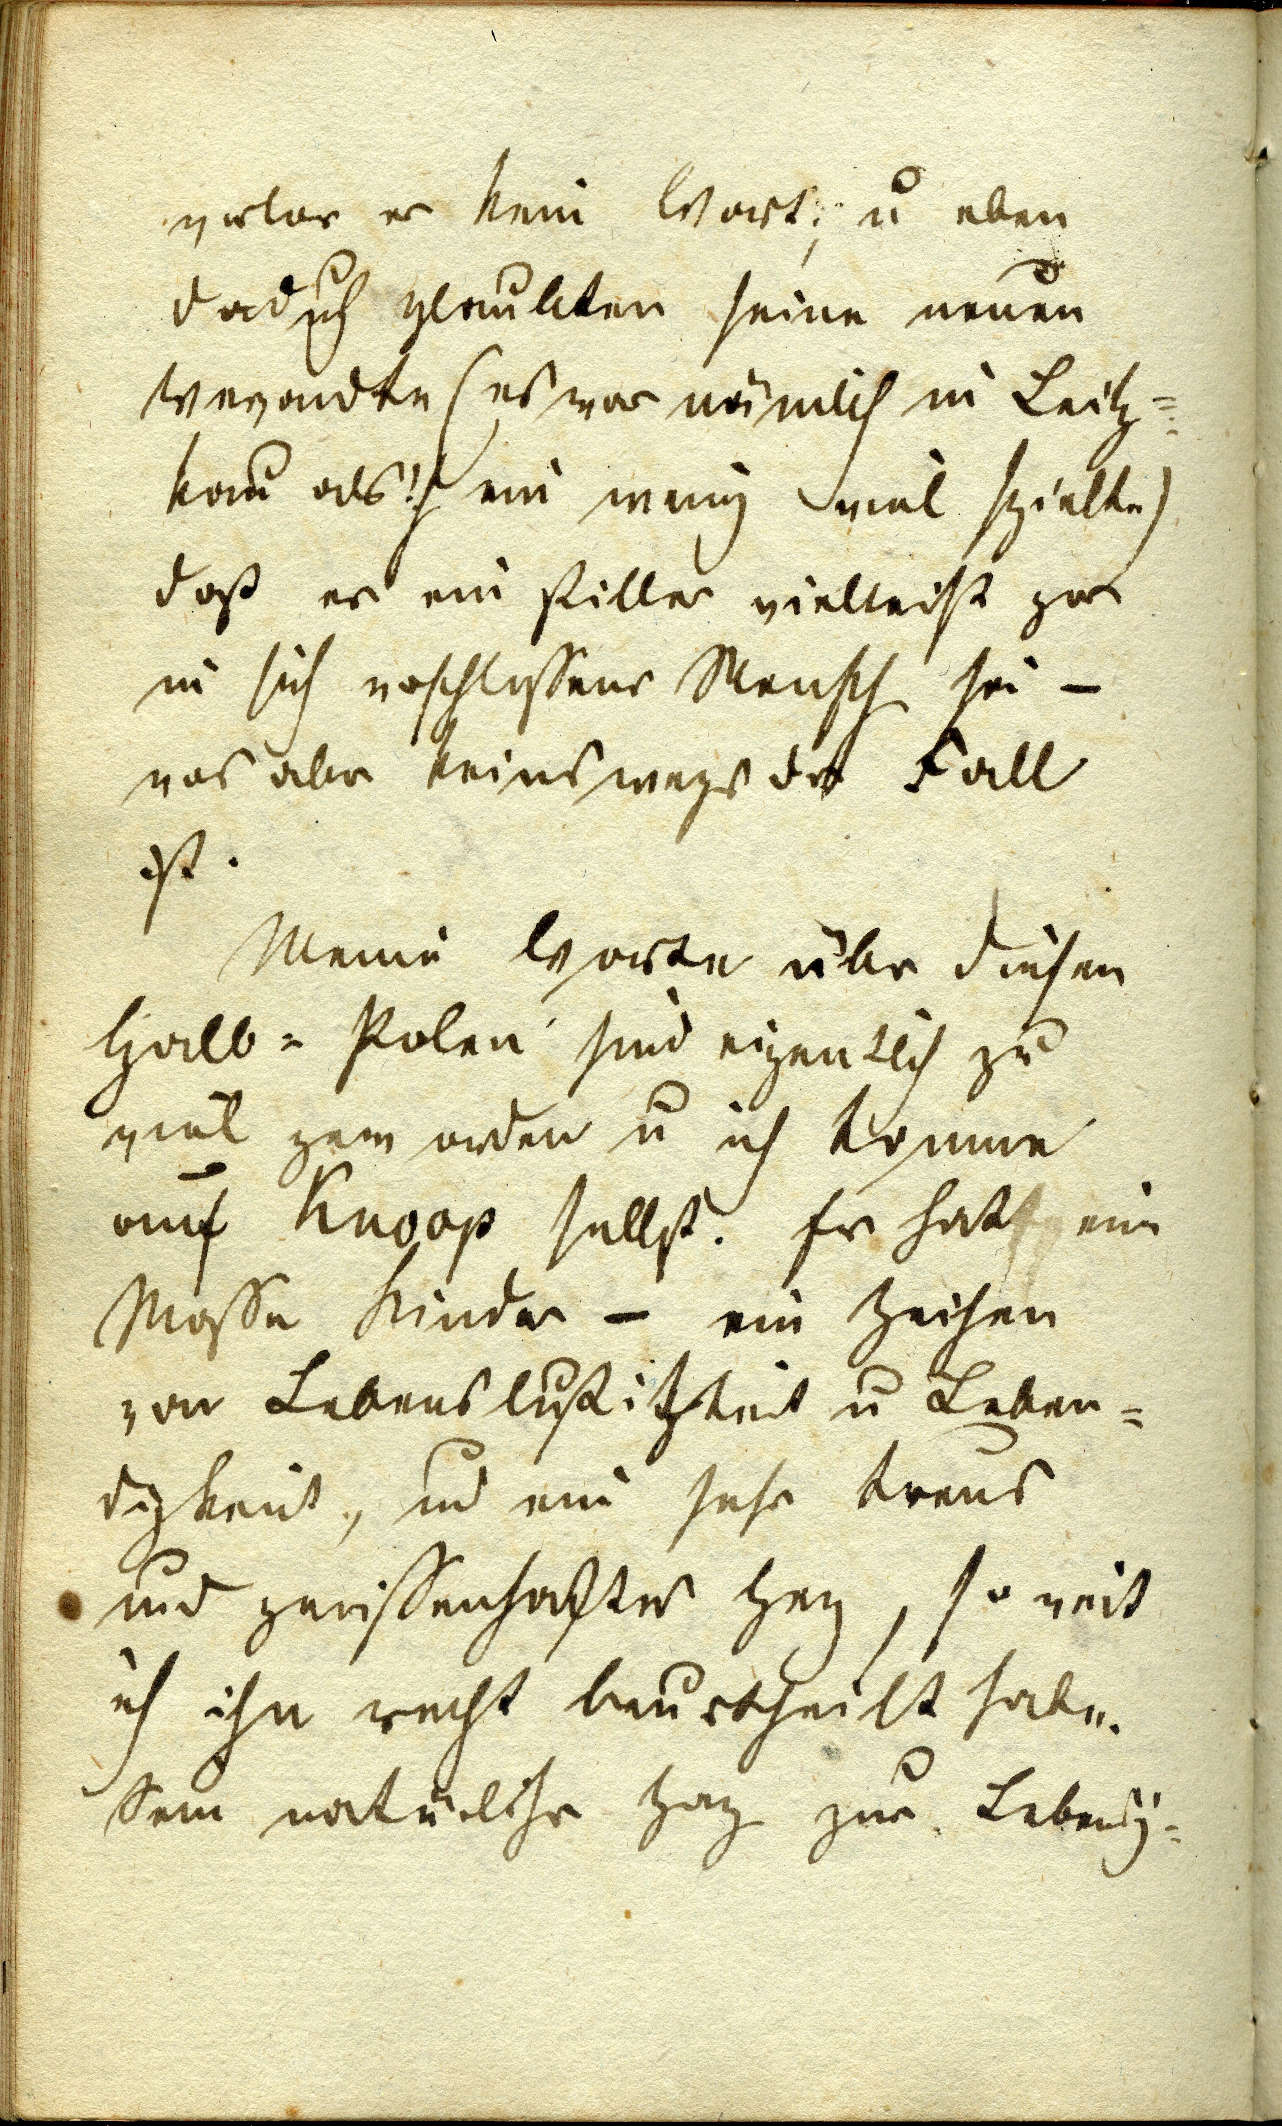 verlor er kein Wort; u eben
daduch glaubten seine neuen
Verwandte (es war nämlich in Leitz=
kau als ich ein wenig viel spielte)
daß er ein stiller vielleicht gar
in sich verschlossener Mensch sei –
was aber keineswegs der Fall
ist.
Meine Worte über diesen
Halb= Polen sind eigentlich zu
viel geworden u ich komme
auf Knoop selbst. Er hat eine
Masse Kinder – ein Zeichen
von Lebenslustigkeit u Leben=
digkeit, und ein sehr treues
und gewissenhaftes Herz, so weit
ich ihn recht beurtheilt habe.
Sein natürlicher Hang zur Lebendig=